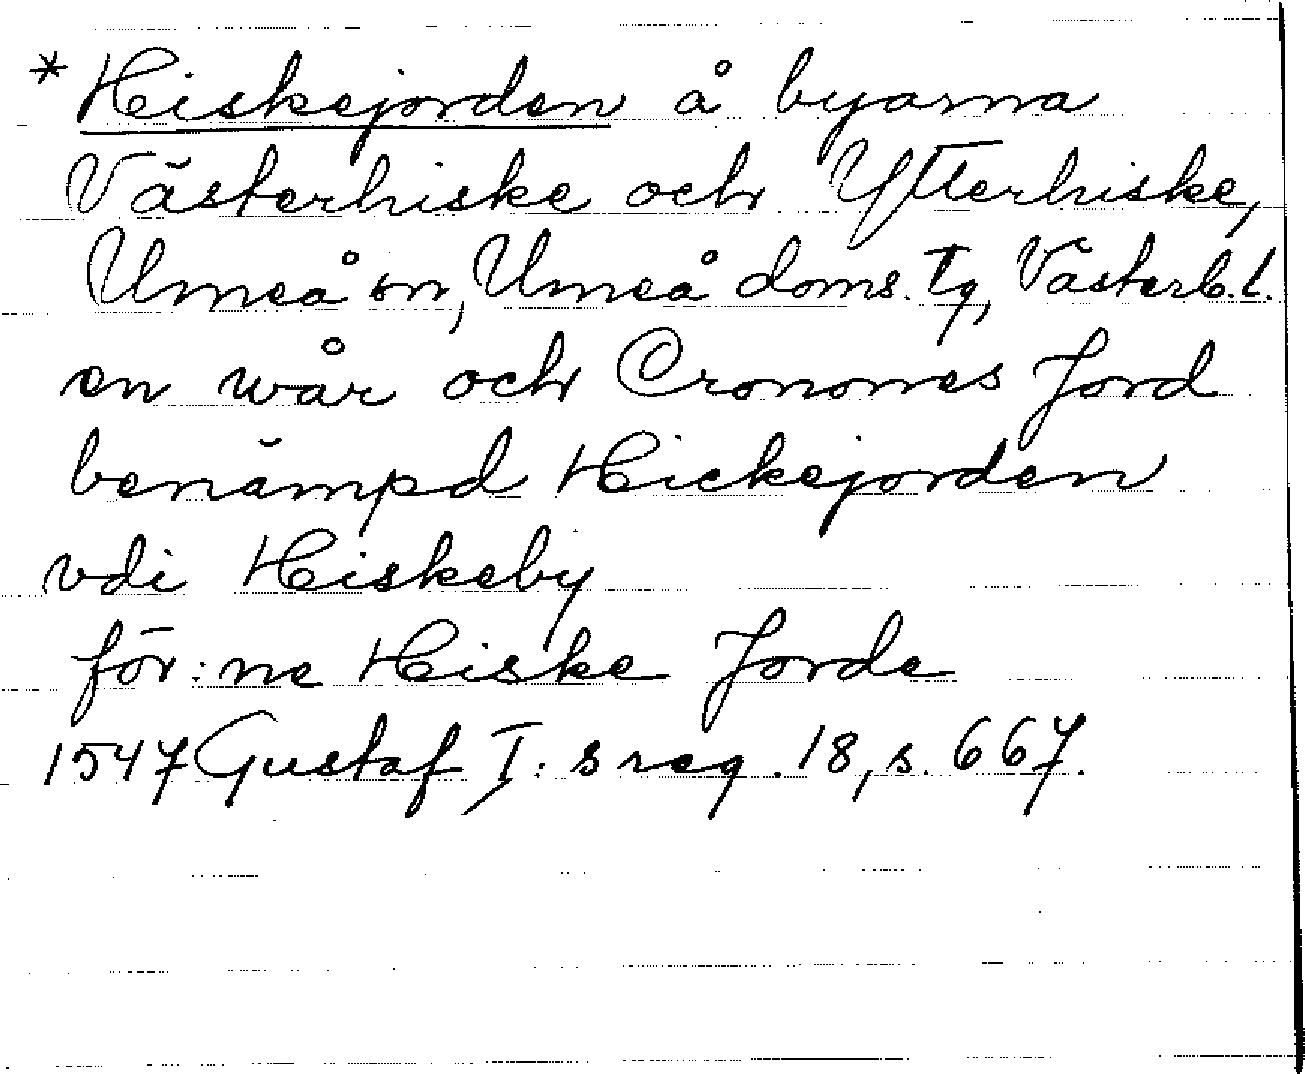 * Hiskejorden å byarna
Västerhiske och Ytterhiske,
Umeå sn, Umeå doms. tg, Västerb. l.
en wår och Cronones Jord
benämpd Hickejorden
vdi Hiskeby
för:ne Hiske Jorde
1547 Gustaf I:s reg. 18, s. 667.